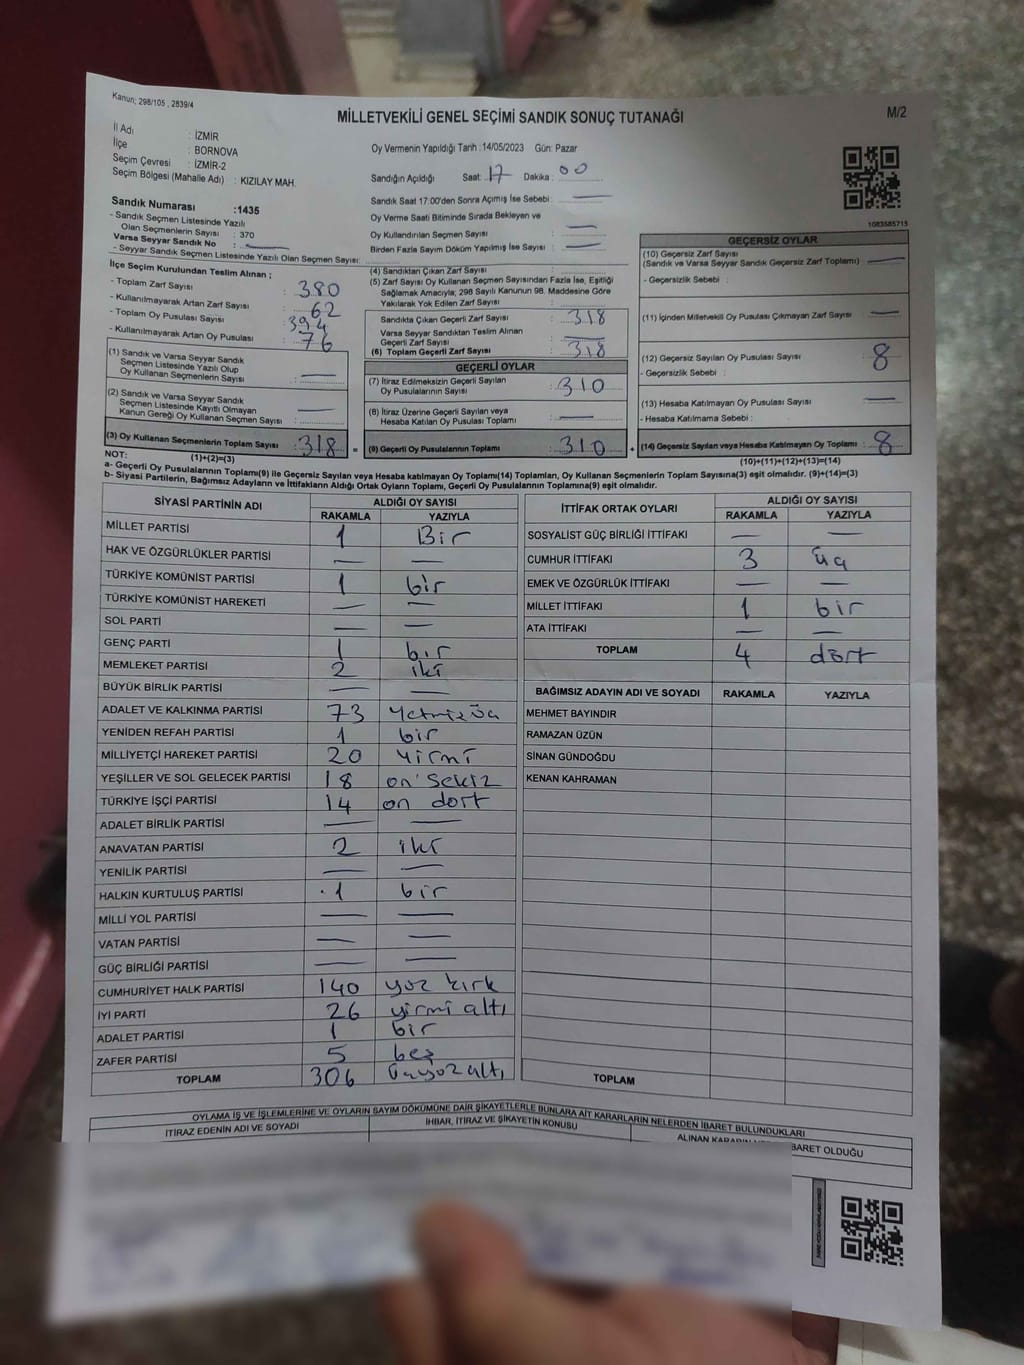 Kanun; 298/105 , 2839/4
MİLLETVEKİLİ GENEL SEÇİMİ SANDIK SONUÇ TUTANAĞI
M/2
İl Adı : İZMİR
İlçe : BORNOVA
Seçim Çevresi : İZMİR-2
Seçim Bölgesi (Mahalle Adı) : KIZILAY MAH.
Oy Vermenin Yapıldığı Tarih : 14/05/2023 Gün: Pazar
Sandığın Açıldığı Saat: 17 Dakika : 00
Sandık Saat 17:00'den Sonra Açımış İse Sebebi : —
Oy Verme Saati Bitiminde Sırada Bekleyen ve
Oy Kullandırılan Seçmen Sayısı : —
Birden Fazla Sayım Döküm Yapılmış İse Sayısı : —
1083585715
Sandık Numarası :1435
- Sandık Seçmen Listesinde Yazılı
Olan Seçmenlerin Sayısı : 370
Varsa Seyyar Sandık No : —
- Seyyar Sandık Seçmen Listesinde Yazılı Olan Seçmen Sayısı:
İlçe Seçim Kurulundan Teslim Alınan ;
- Toplam Zarf Sayısı : 380
- Kullanılmayarak Artan Zarf Sayısı : 62
- Toplam Oy Pusulası Sayısı : 394
- Kullanılmayarak Artan Oy Pusulası : 76
(1) Sandık ve Varsa Seyyar Sandık
Seçmen Listesinde Yazılı Olup
Oy Kullanan Seçmenlerin Sayısı : —
(2) Sandık ve Varsa Seyyar Sandık
Seçmen Listesinde Kayıtlı Olmayan
Kanun Gereği Oy Kullanan Seçmen Sayısı : —
(3) Oy Kullanan Seçmenlerin Toplam Sayısı : 318 =
(1)+(2)=(3)
(4) Sandıktan Çıkan Zarf Sayısı :
(5) Zarf Sayısı Oy Kullanan Seçmen Sayısından Fazla İse, Eşitliği
Sağlamak Amacıyla; 298 Sayılı Kanunun 98. Maddesine Göre
Yakılarak Yok Edilen Zarf Sayısı :
Sandıkta Çıkan Geçerli Zarf Sayısı : 318
Varsa Seyyar Sandıktan Teslim Alınan
Geçerli Zarf Sayısı : —
(6) Toplam Geçerli Zarf Sayısı : 318
GEÇERLİ OYLAR
(7) İtiraz Edilmeksizin Geçerli Sayılan
Oy Pusulalarının Sayısı : 310
(8) İtiraz Üzerine Geçerli Sayılan veya
Hesaba Katılan Oy Pusulası Toplamı : —
(9) Geçerli Oy Pusulalarının Toplamı : 310 +
GEÇERSİZ OYLAR
(10) Geçersiz Zarf Sayısı
(Sandık ve Varsa Seyyar Sandık Geçersiz Zarf Toplamı) : —
- Geçersizlik Sebebi :
(11) İçinden Milletvekili Oy Pusulası Çıkmayan Zarf Sayısı : —
(12) Geçersiz Sayılan Oy Pusulası Sayısı : 8
- Geçersizlik Sebebi :
(13) Hesaba Katılmayan Oy Pusulası Sayısı : —
- Hesaba Katılmama Sebebi :
(14) Geçersiz Sayılan veya Hesaba Katılmayan Oy Toplamı : 8
(10)+(11)+(12)+(13)=(14)
NOT:
a- Geçerli Oy Pusulalarının Toplamı(9) ile Geçersiz Sayılan veya Hesaba katılmayan Oy Toplamı(14) Toplamları, Oy Kullanan Seçmenlerin Toplam Sayısına(3) eşit olmalıdır. (9)+(14)=(3)
b- Siyasi Partilerin, Bağımsız Adayların ve İttifakların Aldığı Ortak Oyların Toplamı, Geçerli Oy Pusulalarının Toplamına(9) eşit olmalıdır.
SİYASİ PARTİNİN ADI ALDIĞI OY SAYISI
RAKAMLA YAZIYLA
MİLLET PARTİSİ 1 Bir
HAK VE ÖZGÜRLÜKLER PARTİSİ — —
TÜRKİYE KOMÜNİST PARTİSİ 1 bir
TÜRKİYE KOMÜNİST HAREKETİ — —
SOL PARTİ — —
GENÇ PARTİ 1 bir
MEMLEKET PARTİSİ 2 iki
BÜYÜK BİRLİK PARTİSİ — —
ADALET VE KALKINMA PARTİSİ 73 Yetmişüç
YENİDEN REFAH PARTİSİ 1 bir
MİLLİYETÇİ HAREKET PARTİSİ 20 Yirmi
YEŞİLLER VE SOL GELECEK PARTİSİ 18 on sekiz
TÜRKİYE İŞÇİ PARTİSİ 14 on dört
ADALET BİRLİK PARTİSİ — —
ANAVATAN PARTİSİ 2 iki
YENİLİK PARTİSİ — —
HALKIN KURTULUŞ PARTİSİ 1 bir
MİLLİ YOL PARTİSİ — —
VATAN PARTİSİ — —
GÜÇ BİRLİĞİ PARTİSİ — —
CUMHURİYET HALK PARTİSİ 140 yüz kırk
İYİ PARTİ 26 yirmi altı
ADALET PARTİSİ 1 bir
ZAFER PARTİSİ 5 beş
TOPLAM 306 üçyüzaltı
İTTİFAK ORTAK OYLARI ALDIĞI OY SAYISI
RAKAMLA YAZIYLA
SOSYALİST GÜÇ BİRLİĞİ İTTİFAKI — —
CUMHUR İTTİFAKI 3 üç
EMEK VE ÖZGÜRLÜK İTTİFAKI — —
MİLLET İTTİFAKI 1 bir
ATA İTTİFAKI — —
TOPLAM 4 dört
BAĞIMSIZ ADAYIN ADI VE SOYADI RAKAMLA YAZIYLA
MEHMET BAYINDIR
RAMAZAN ÜZÜN
SİNAN GÜNDOĞDU
KENAN KAHRAMAN
TOPLAM
OYLAMA İŞ VE İŞLEMLERİNE VE OYLARIN SAYIM DÖKÜMÜNE DAİR ŞİKAYETLERLE BUNLARA AİT KARARLARIN NELERDEN İBARET BULUNDUKLARI
İTİRAZ EDENİN ADI VE SOYADI
İHBAR, İTİRAZ VE ŞİKAYETİN KONUSU
ALINAN BARET OLDUĞU